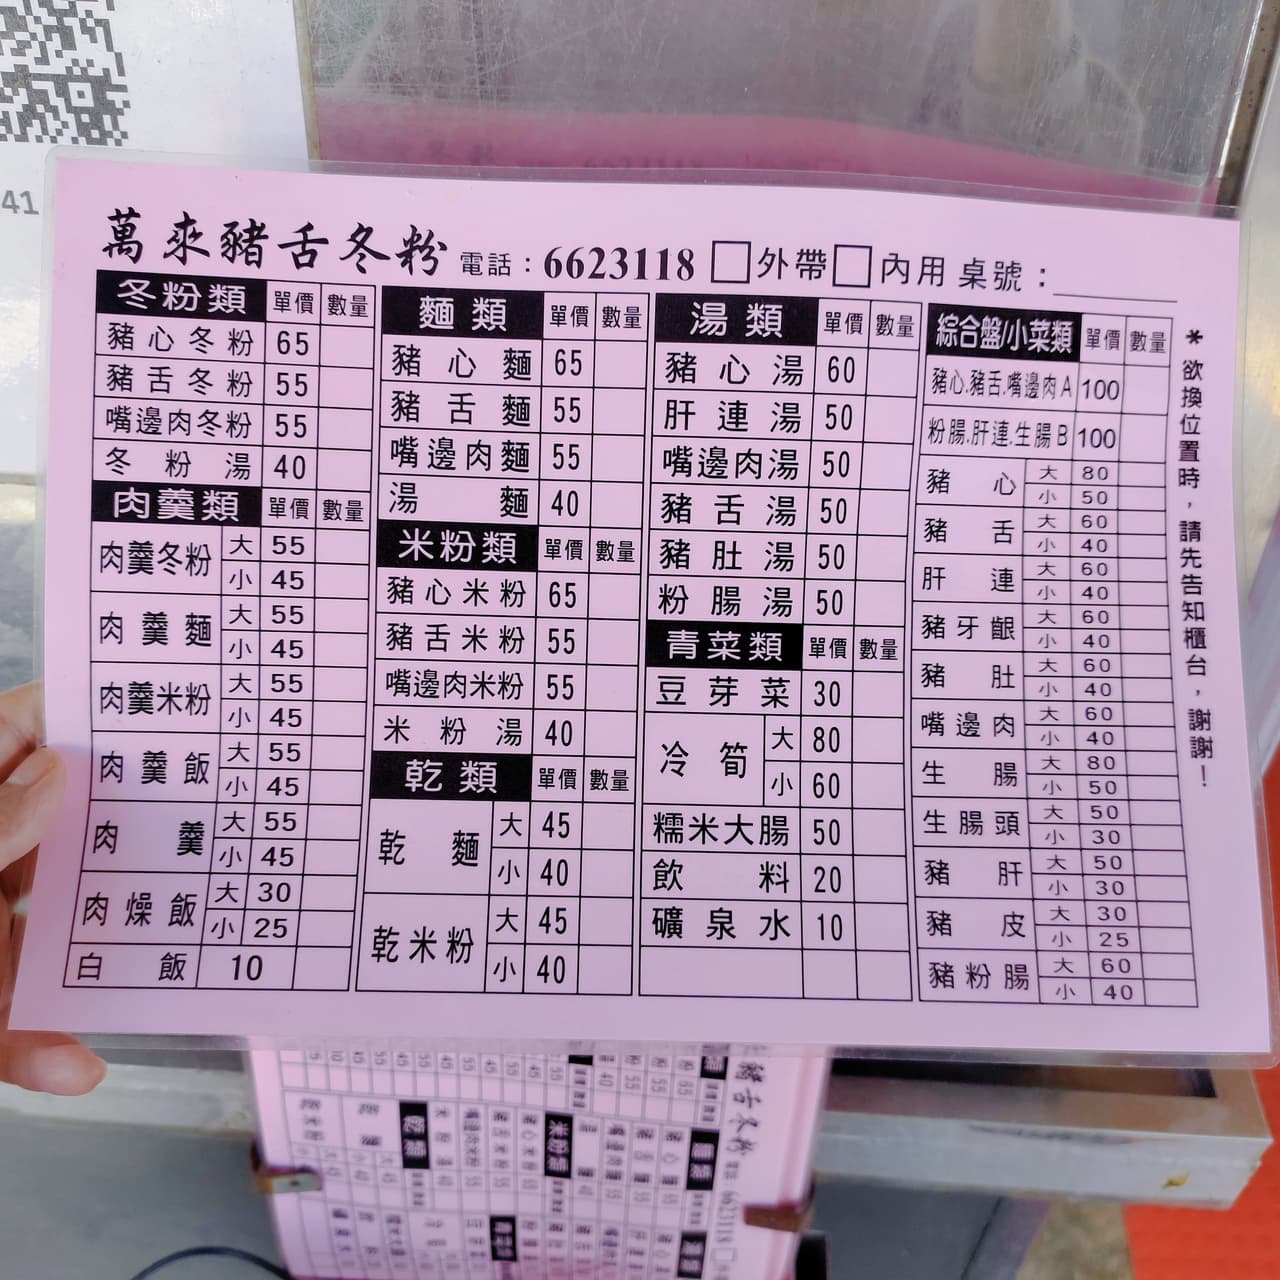 41
萬來豬舌冬粉 電話：6623118 □外帶□內用 桌號：
冬粉類 單價 數量
豬心冬粉 65
豬舌冬粉 55
嘴邊肉冬粉 55
冬粉湯 40
肉羹類 單價 數量
肉羹冬粉 大 55
小 45
肉羹麵 大 55
小 45
肉羹米粉 大 55
小 45
肉羹飯 大 55
小 45
肉羹 大 55
小 45
肉燥飯 大 30
小 25
白飯 10
麵類 單價 數量
豬心麵 65
豬舌麵 55
嘴邊肉麵 55
湯麵 40
米粉類 單價 數量
豬心米粉 65
豬舌米粉 55
嘴邊肉米粉 55
米粉湯 40
乾類 單價 數量
乾麵 大 45
小 40
乾米粉 大 45
小 40
湯類 單價 數量
豬心湯 60
肝連湯 50
嘴邊肉湯 50
豬舌湯 50
豬肚湯 50
粉腸湯 50
青菜類 單價 數量
豆芽菜 30
冷筍 大 80
小 60
糯米大腸 50
飲料 20
礦泉水 10
綜合盤/小菜類 單價 數量
豬心.豬舌.嘴邊肉A 100
粉腸.肝連.生腸B 100
豬心 大 80
小 50
豬舌 大 60
小 40
肝連 大 60
小 40
豬牙齦 大 60
小 40
豬肚 大 60
小 40
嘴邊肉 大 60
小 40
生腸 大 80
小 50
生腸頭 大 50
小 30
豬肝 大 50
小 30
豬皮 大 30
小 25
豬粉腸 大 60
小 40
*欲換位置時，請先告知櫃台，謝謝！